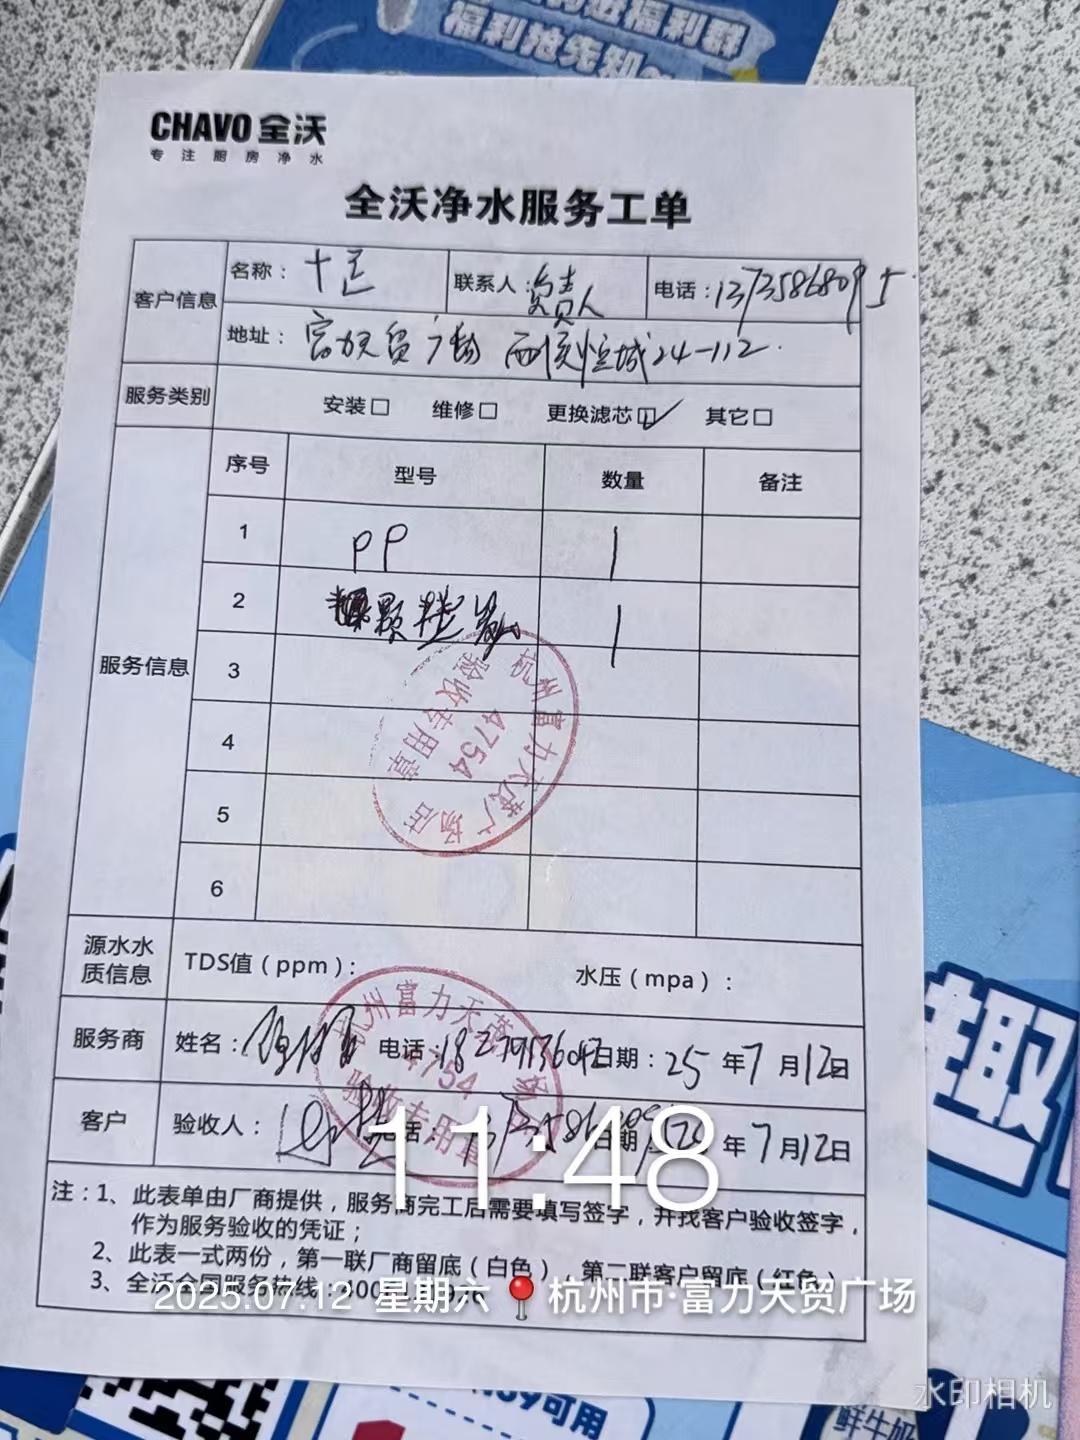 福利群
福利抢先知
CHAVO 全沃
专注厨房净水
全沃净水服务工单
客户信息 名称： 联系人：负责人 电话：13735868095
地址：富力天贸广场 24-112
服务类别 安装□ 维修□ 更换滤芯☑ 其它□
服务信息 序号 型号 数量 备注
1 PP 1
2 颗粒炭 1
3
4
5
6
杭州富力天茂广场店
4754
验收专用章
源水水质信息 TDS值（ppm）： 水压（mpa）：
服务商 姓名： 电话： 日期：25年7月12日
客户 验收人： 电话： 日期：25年7月12日
杭州富力天茂
4754
验收专用章
11:48
注：1、此表单由厂商提供，服务商完工后需要填写签字，并找客户验收签字，
作为服务验收的凭证；
2、此表一式两份，第一联厂商留底（白色），第二联客户留底（红色）
3、全沃全国服务热线：400
2025.07.12 星期六 杭州市·富力天贸广场
水印相机
趣
可用
鲜牛奶